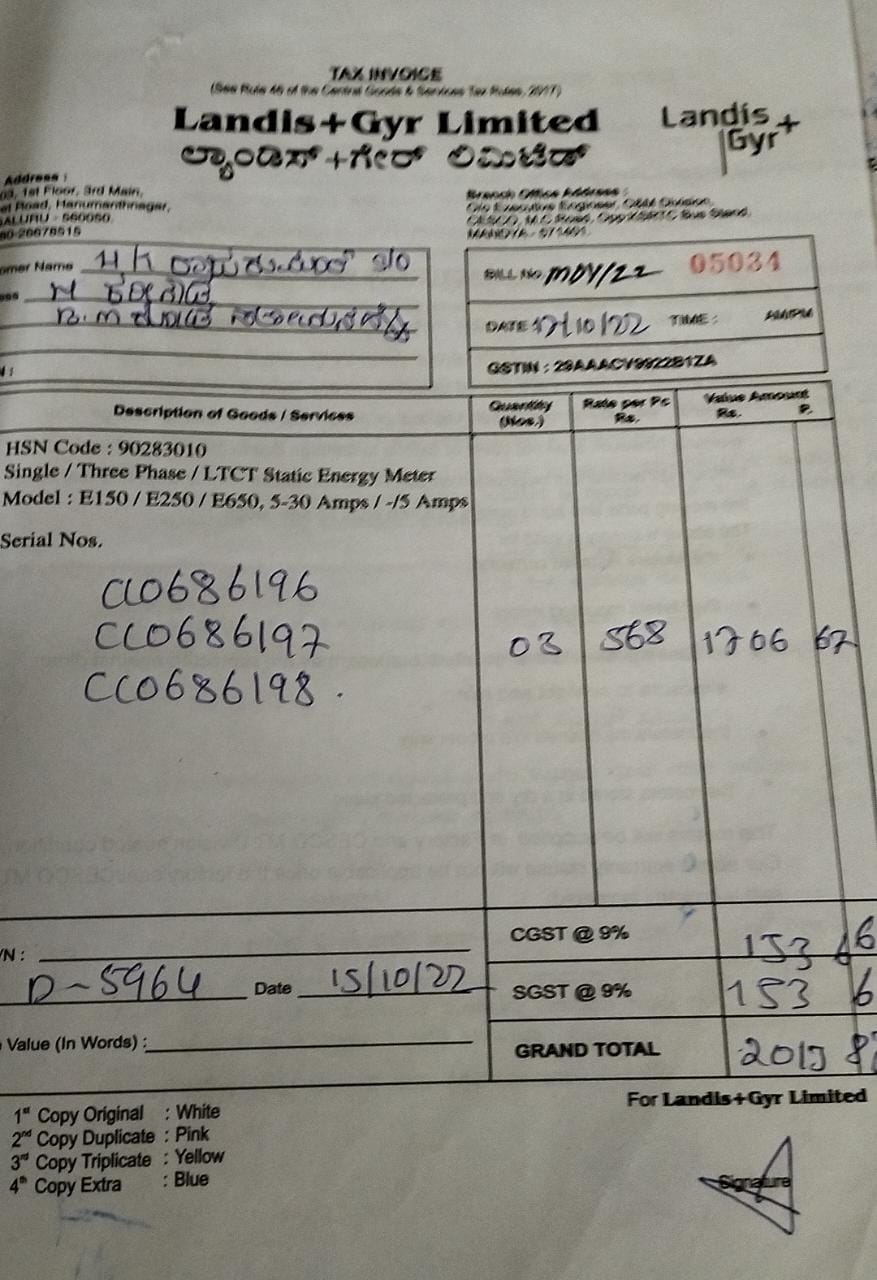 TAX INVOICE
(See Rule 46 of the Central Goods & Services Tax Rules, 2017)
Landis+Gyr Limited
ಲ್ಯಾಂಡಿಸ್+ಗೇರ್ ಲಿಮಿಟೆಡ್
Landis+
Gyr
Address :
03, 1st Floor, 3rd Main,
Road, Hanumanthnagar,
ALURU - 560050
Branch Office Address :
C/o Executive Engineer, O&M Division,
CESCO, M.C Road, Opp KSRTC Bus Stand,
MANDYA - 571401.
omer Name S/O
BILL No MDY/22 05034
DATE 17/10/22 TIME : AM/PM
GSTIN : 29AAACV9922B1ZA
Description of Goods / Services
Quantity (Nos.)
Rate per Pc Rs.
Value Amount Rs. P.
HSN Code : 90283010
Single / Three Phase / LTCT Static Energy Meter
Model : E150 / E250 / E650, 5-30 Amps / -/5 Amps
Serial Nos.
CC0686196
CC0686197 03 568 1706 67
CC0686198.
CGST @ 9% 153 66
N :
D-5964 Date 15/10/22
SGST @ 9% 153 6
Value (In Words) :
GRAND TOTAL 2013 8
For Landis+Gyr Limited
1st Copy Original : White
2nd Copy Duplicate : Pink
3rd Copy Triplicate : Yellow
4th Copy Extra : Blue
Signature